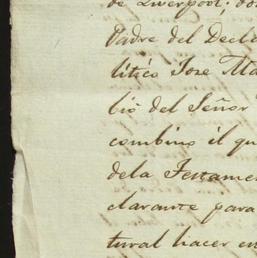 de Liverpool; do
Padre del Decla
litico Jose Ma
bio del Señor
combino el qu
dela Testamen
clarante para
tural hacer en